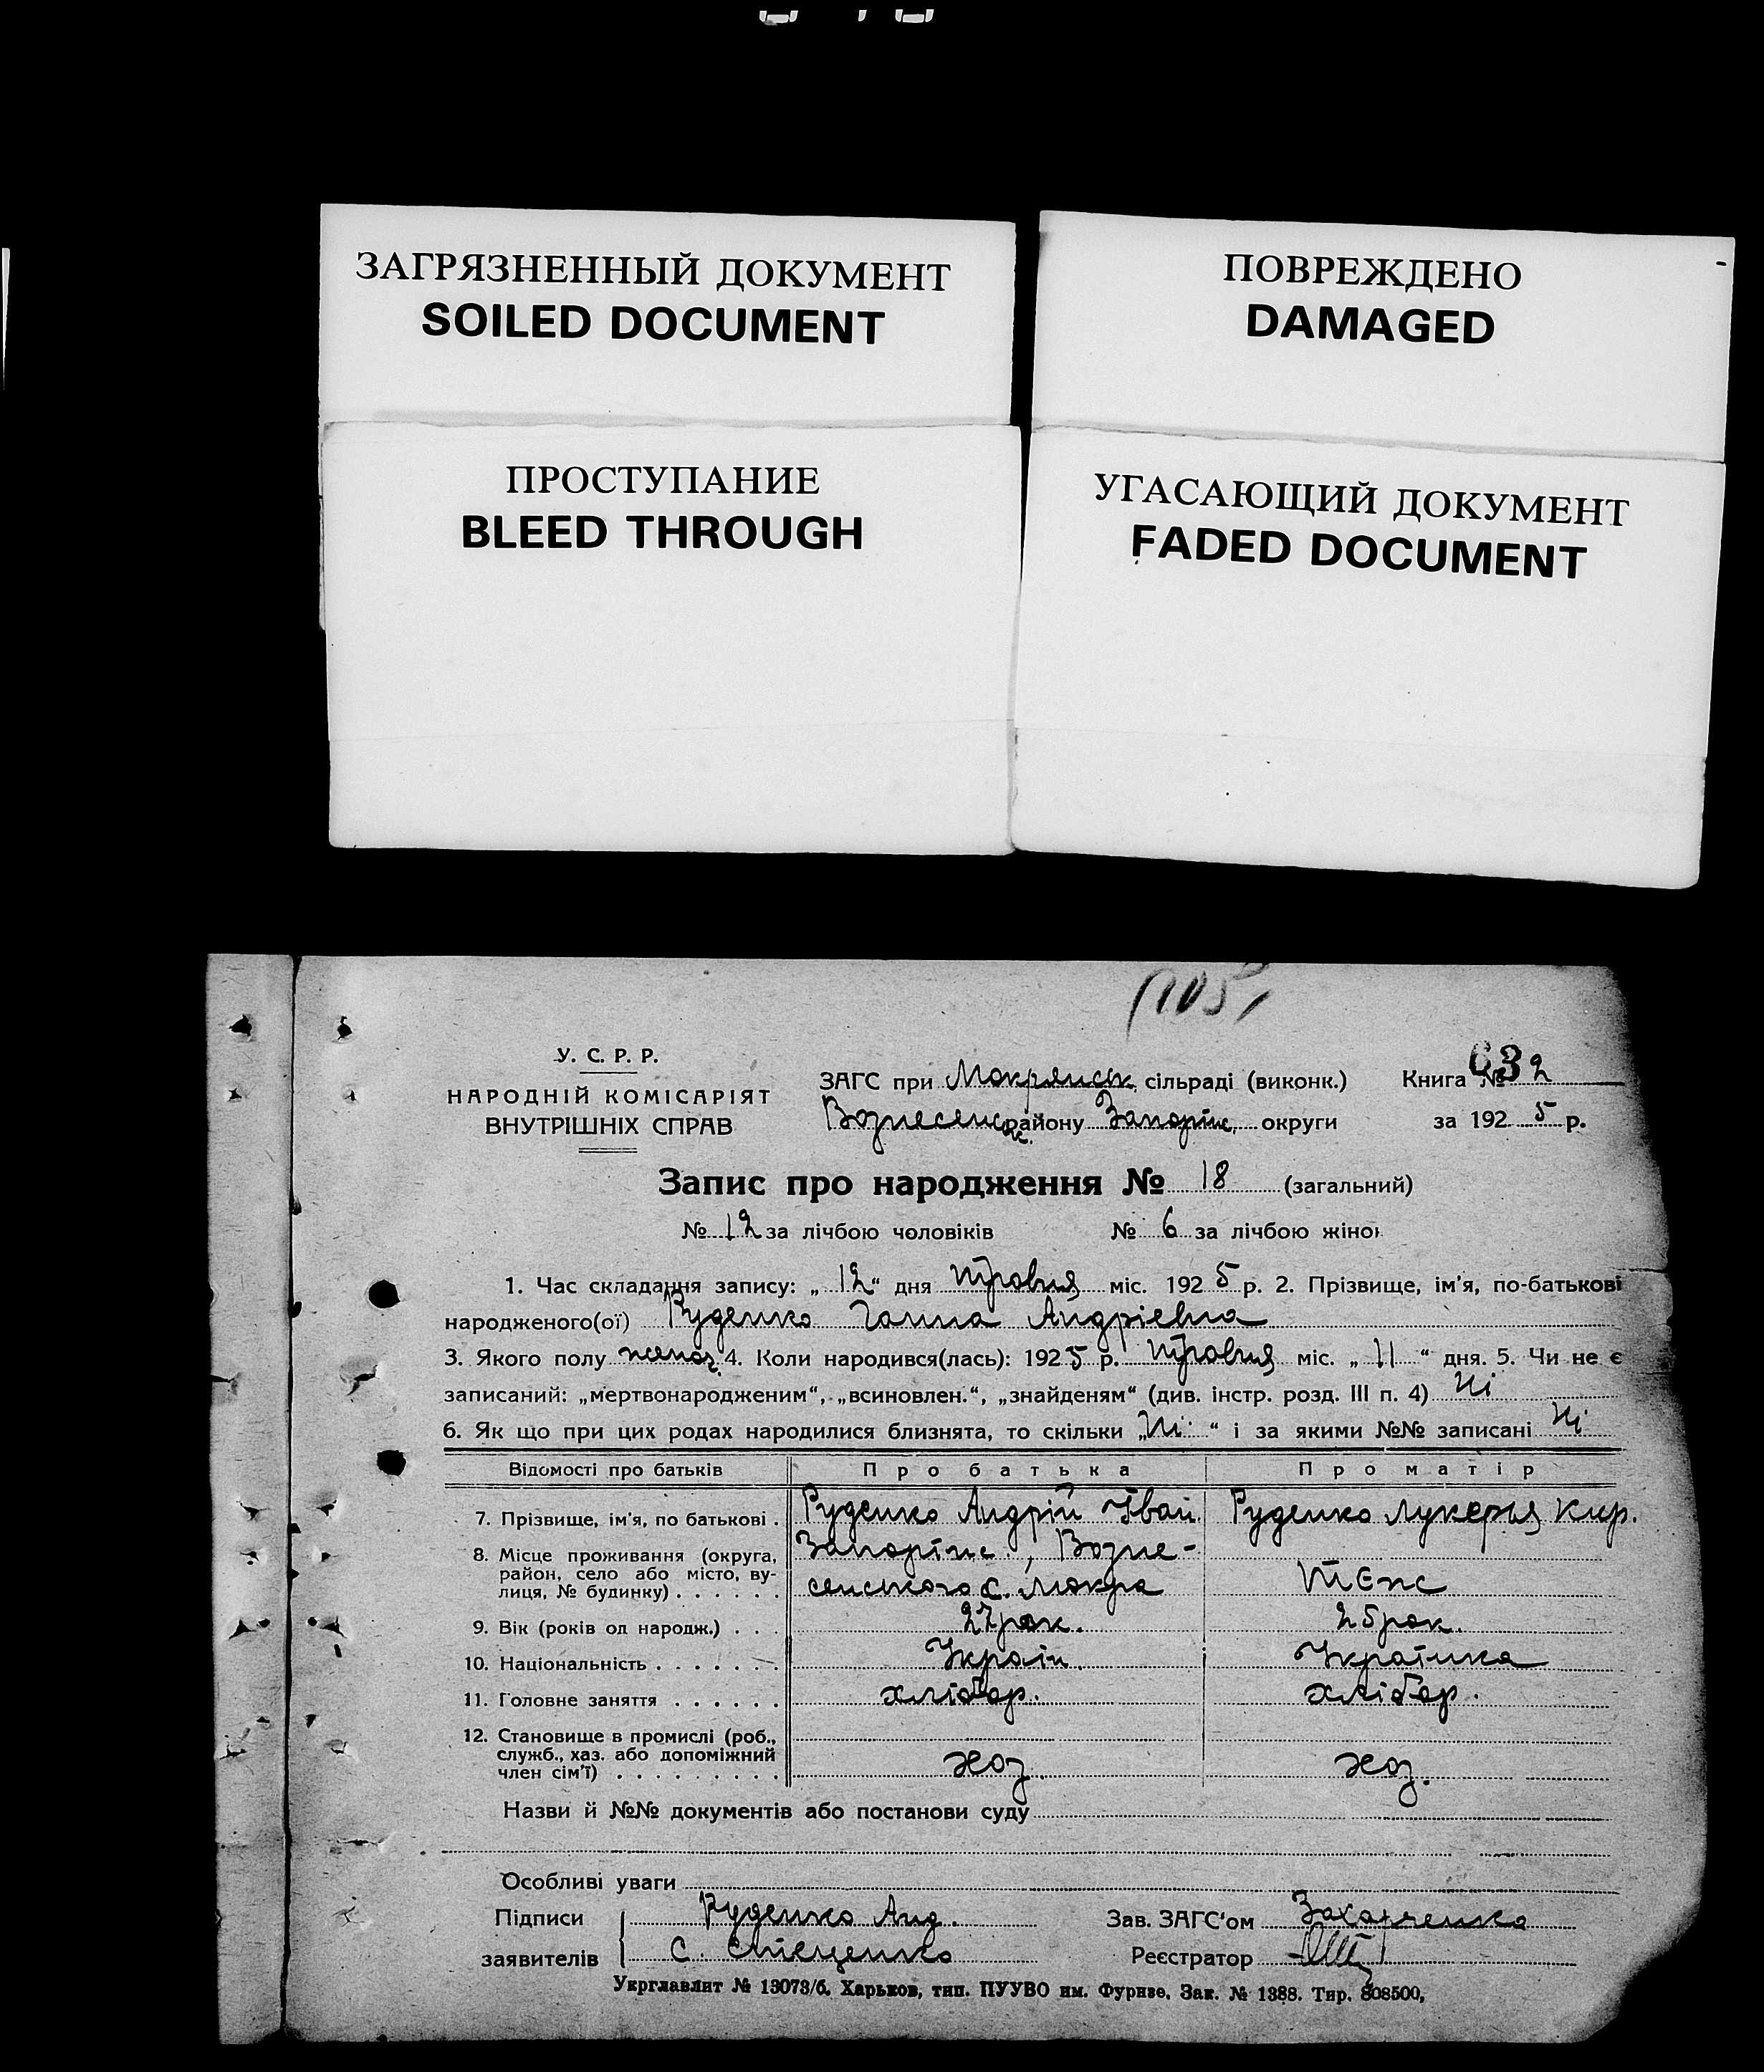 ЗАГРЯЗНЕННЫЙ ДОКУМЕНТ
SOILED DOCUMENT
ПОВРЕЖДЕНО
DAMAGED
ПРОСТУПАНИЕ
BLEED THROUGH
УГАСАЮЩИЙ ДОКУМЕНТ
FADED DOCUMENT
У. С. Р. Р.
НАРОДНІЙ КОМІСАРІЯТ
ВНУТРІШНІХ СПРАВ
ЗАГС при Мокрянськ. сільраді (виконк.)
Вознесенськ. району Запоріж. округи
Книга № 2
63
за 1925 р.
Запис про народження № 18 (загальний)
№ 12 за лічбою чоловіків № 6 за лічбою жінок
1. Час складання запису: „12“ дня травня міс. 1925 р. 2. Прізвище, ім'я, по-батькові
народженого(ої) Руденко Ганна Андріевна
3. Якого полу жіноч. 4. Коли народився(лась): 1925 р. травня міс. „11“ дня. 5. Чи не є
записаний: „мертвонародженим“, „всиновлен.“, „знайденям“ (див. інстр. розд. III п. 4) Ні
6. Як що при цих родах народилися близнята, то скільки „Ні“ і за якими №№ записані Ні
Відомості про батьків Про батька Про матір
7. Прізвище, ім'я, по батькові . Руденко Андрій Іван. Руденко Лукерья Кир.
8. Місце проживання (округа, район, село або місто, вулиця, № будинку) . . . . . . Запоріж., Вознесенського с. Мокра
9. Вік (років од народж.) . . . 27 рок. 25 рок.
10. Національність . . . . . . . Україн. Українка
11. Головне заняття . . . . . . хлібор. хлібор.
12. Становище в промислі (роб., служб., хаз. або допоміжний член сім'ї) . . . . . . . . . хоз. хоз.
Назви й №№ документів або постанови суду
Особливі уваги
Підписи заявителів Руденко Анд.
С. Стеценко
Зав. ЗАГС'ом Захарченко
Реєстратор
Укрглавлит № 13073/б. Харьков, тип. ПУУВО им. Фрунзе. Зак. № 1388. Тир. 808500,